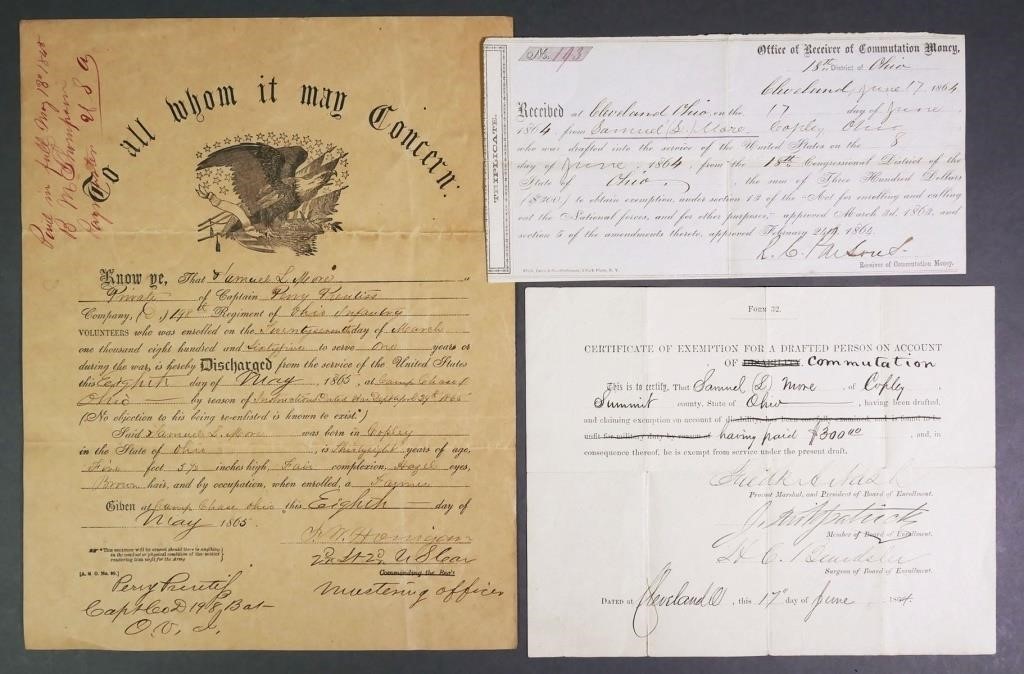 Paid in full May 13th 1865
Paymaster U S A
To all whom it may Concern.
Know ye, That Samuel L. More
Private of Captain Perry Prentiss
Company, (D.) 198th Regiment of Ohio Infantry
VOLUNTEERS who was enrolled on the day of March
one thousand eight hundred and Sixty five to serve One years or
during the war, is hereby Discharged from the service of the United States
this Eighth day of May, 1865, at Camp Chase
Ohio by reason of Instructions Dated War Dept April 29th 1865
(No objection to his being re-enlisted is known to exist.*)
Said Samuel L. More was born in Copley
in the State of Ohio, is Thirty eight years of age,
Five feet 5¾ inches high, Fair complexion, Hazel eyes,
Brown hair, and by occupation, when enrolled, a Farmer
Given at Camp Chase Ohio this Eighth day of
May 1865.
*This sentence will be erased should there be anything
in the conduct or physical condition of the soldier
rendering him unfit for the Army.
[A. G. O. No. 99.]
2d Lt 2d U S Cav
Commanding the Reg't
Mustering officer
Perry Prentiss
Capt Co D 198 Bat
O. V. I.
TRIPLICATE.
No. 193
Office of Receiver of Commutation Money,
18th District of Ohio
Cleveland, June 17, 1864
Received at Cleveland Ohio, on the 17 day of June
1864, from Samuel (L.) More Copley Ohio
who was drafted into the service of the United States on the 8
day of June, 1864, from the 18th Congressional District of the
State of Ohio, the sum of Three Hundred Dollars
($300) to obtain exemption, under section 13 of the "Act for enrolling and calling
out the National forces, and for other purposes," approved March 3d. 1863, and
section 5 of the amendments thereto, approved February 24th, 1864.
R. C. Parsons
Receiver of Commutation Money.
FORM 32.
CERTIFICATE OF EXEMPTION FOR A DRAFTED PERSON ON ACCOUNT
OF DISABILITY. Commutation
This is to certify, That Samuel (L) More, of Copley
Summit county, State of Ohio, having been drafted,
and claiming exemption on account of disability, has been carefully examined, and is found to be
unfit for military duty by reason of having paid $300 00, and, in
consequence thereof, he is exempt from service under the present draft.
Fredk A Nash
Provost Marshal, and President of Board of Enrollment.
J. Fitzpatrick
Member of Board of Enrollment.
H. C. Beardslee
Surgeon of Board of Enrollment.
DATED at Cleveland O, this 17th day of June, 1864.